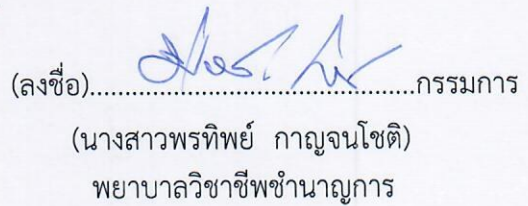 (ลงชื่อ)................................................กรรมการ
(นางสาวพรทิพย์ กาญจนโชติ)
พยาบาลวิชาชีพชำนาญการ